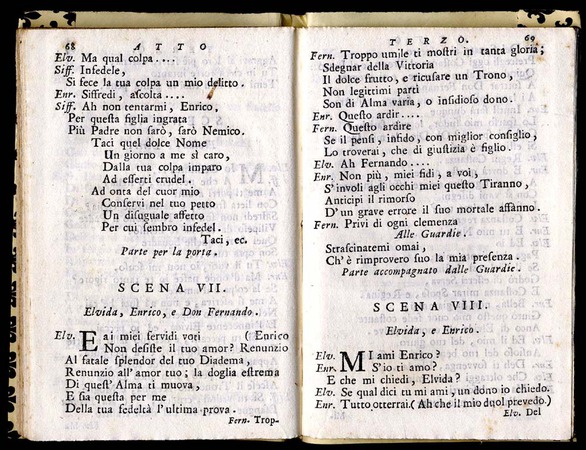 68 ATTO
Elv. Ma qual colpa....
Siff. Infedele,
Si fece la tua colpa un mio delitto.
Enr. Siffredi, ascolta....
Siff. Ah non tentarmi, Enrico,
Per questa figlia ingrata
Più Padre non sarò, sarò Nemico.
Taci quel dolce Nome
Un giorno a me sì caro,
Dalla tua colpa imparo
Ad esserti crudel.
Ad onta del cuor mio
Conservi nel tuo petto
Un disuguale affetto
Per cui sembro infedel.
Taci, ec.
Parte per la porta.
SCENA VII.
Elvida, Enrico, e Don Fernando.
Elv. E ai miei fervidi voti (Enrico
Non desiste il tuo amor? Renunzio
Al fatale splendor del tuo Diadema,
Renunzio all'amor tuo; la doglia estrema
Di quest'Alma ti muova,
E sia questa per me
Della tua fedeltà l'ultima prova.
Fern. Trop-
TERZO. 69
Fern. Troppo umile ti mostri in tanta gloria;
Sdegnar della Vittoria
Il dolce frutto, e ricusare un Trono,
Non legittimi parti
Son di Alma varia, o insidioso dono.
Enr. Questo ardir....
Fern. Questo ardire
Se il pensi, infido, con miglior consiglio,
Lo troverai, che di giustizia è figlio.
Elv. Ah Fernando....
Enr. Non più, miei fidi, a voi,
S'involi agli occhi miei questo Tiranno,
Anticipi il rimorso
D'un grave errore il suo mortale affanno.
Fern. Privi di ogni clemenza
Alle Guardie.
Strascinatemi omai,
Ch'è rimprovero suo la mia presenza.
Parte accompagnato dalle Guardie.
SCENA VIII.
Elvida, e Enrico.
Elv. Mi ami Enrico?
Enr. S'io ti amo?
E che mi chiedi, Elvida?
Elv. Se qual dici tu mi ami, un dono io chiedo.
Enr. Tutto otterrai. (Ah che il mio duol prevedo.)
Elv. Del